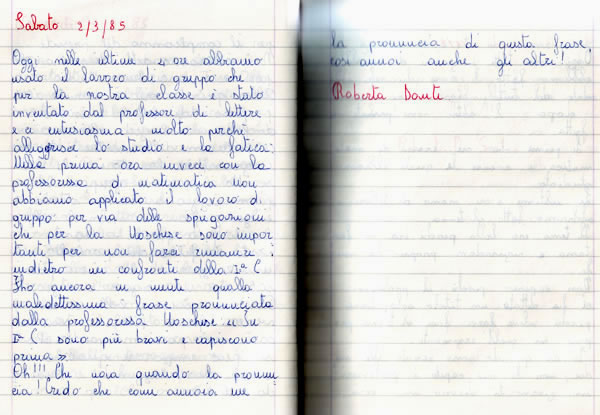 Sabato 2/3/85
Oggi nelle ultime 4 ore abbiamo
usato il lavoro di gruppo che
per la nostra classe è stato
inventato dal professore di lettere
e ci entusiasma molto perché
alleggerisce lo studio e la fatica.
Nella prima ora invece con la
professoressa di matematica non
abbiamo applicato il lavoro di
gruppo per via delle spiegazioni
che per la Moschese sono impor
tanti per non farci rimanere
indietro in confronti della Iª C
Ho ancora in mente quella
maledettissima frase pronunciata
dalla professoressa Moschese « In
Iª C sono più bravi e capiscono
prima »
Oh!!! Che noia quando la pronun
cia! Credo che come annoia me
la pronuncia di questa frase,
così annoi anche gli altri!
Roberta Dante